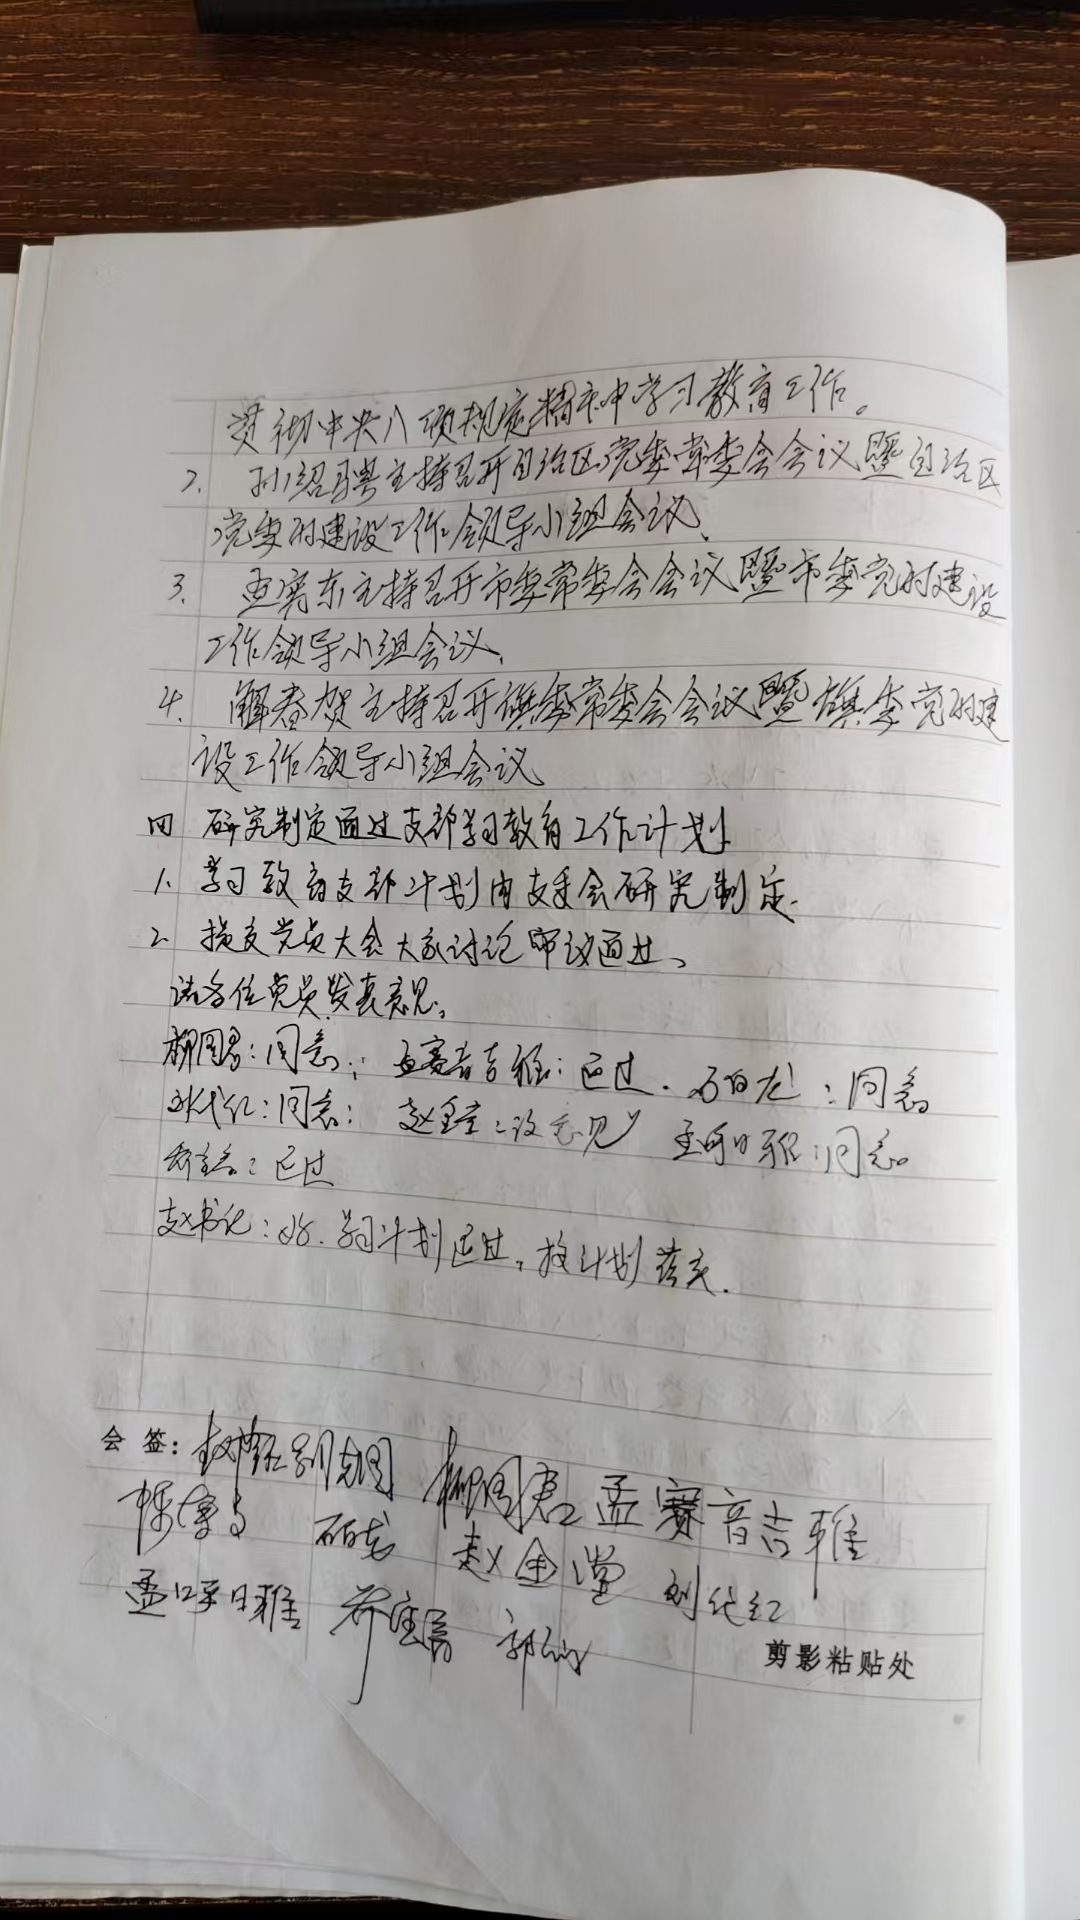 贯彻中央八项规定精神学习教育工作。
2. 孙绍骋主持召开自治区党委常委会会议暨自治区
党委党的建设工作领导小组会议、
3. 孟宪东主持召开市委常委会会议暨市委党的建设
工作领导小组会议、
4. 解春贺主持召开旗委常委会会议暨旗委党的建
设工作领导小组会议
四 研究制定通过支部学习教育工作计划
1. 学习教育支部计划由支委会研究制定.
2. 提交党员大会大家讨论审议通过、
请各位党员发表意见。
柳国君:同意; 孟赛音吉雅:通过. 石白龙:同意
刘代红:同意; 赵金堂:没意见 孟呼日雅:同意。
通过
赵书记:好.学习计划通过,按计划落实.
会 签:
柳国君 孟赛音吉雅
赵金堂 刘代红
孟呼日雅
剪影粘贴处